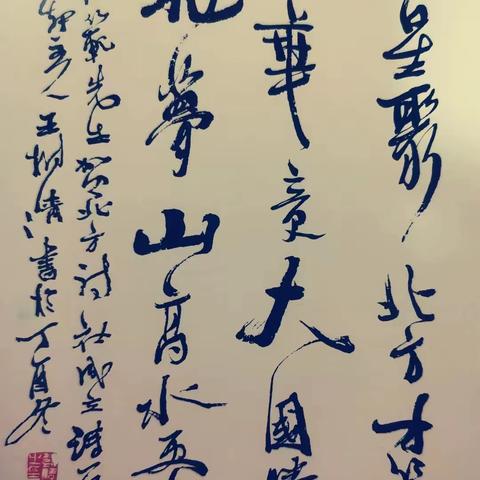 星聚北方才
華章大國
夢山高水更
範先生賀北方詩社成立詩
主人王炳清書於丁酉冬